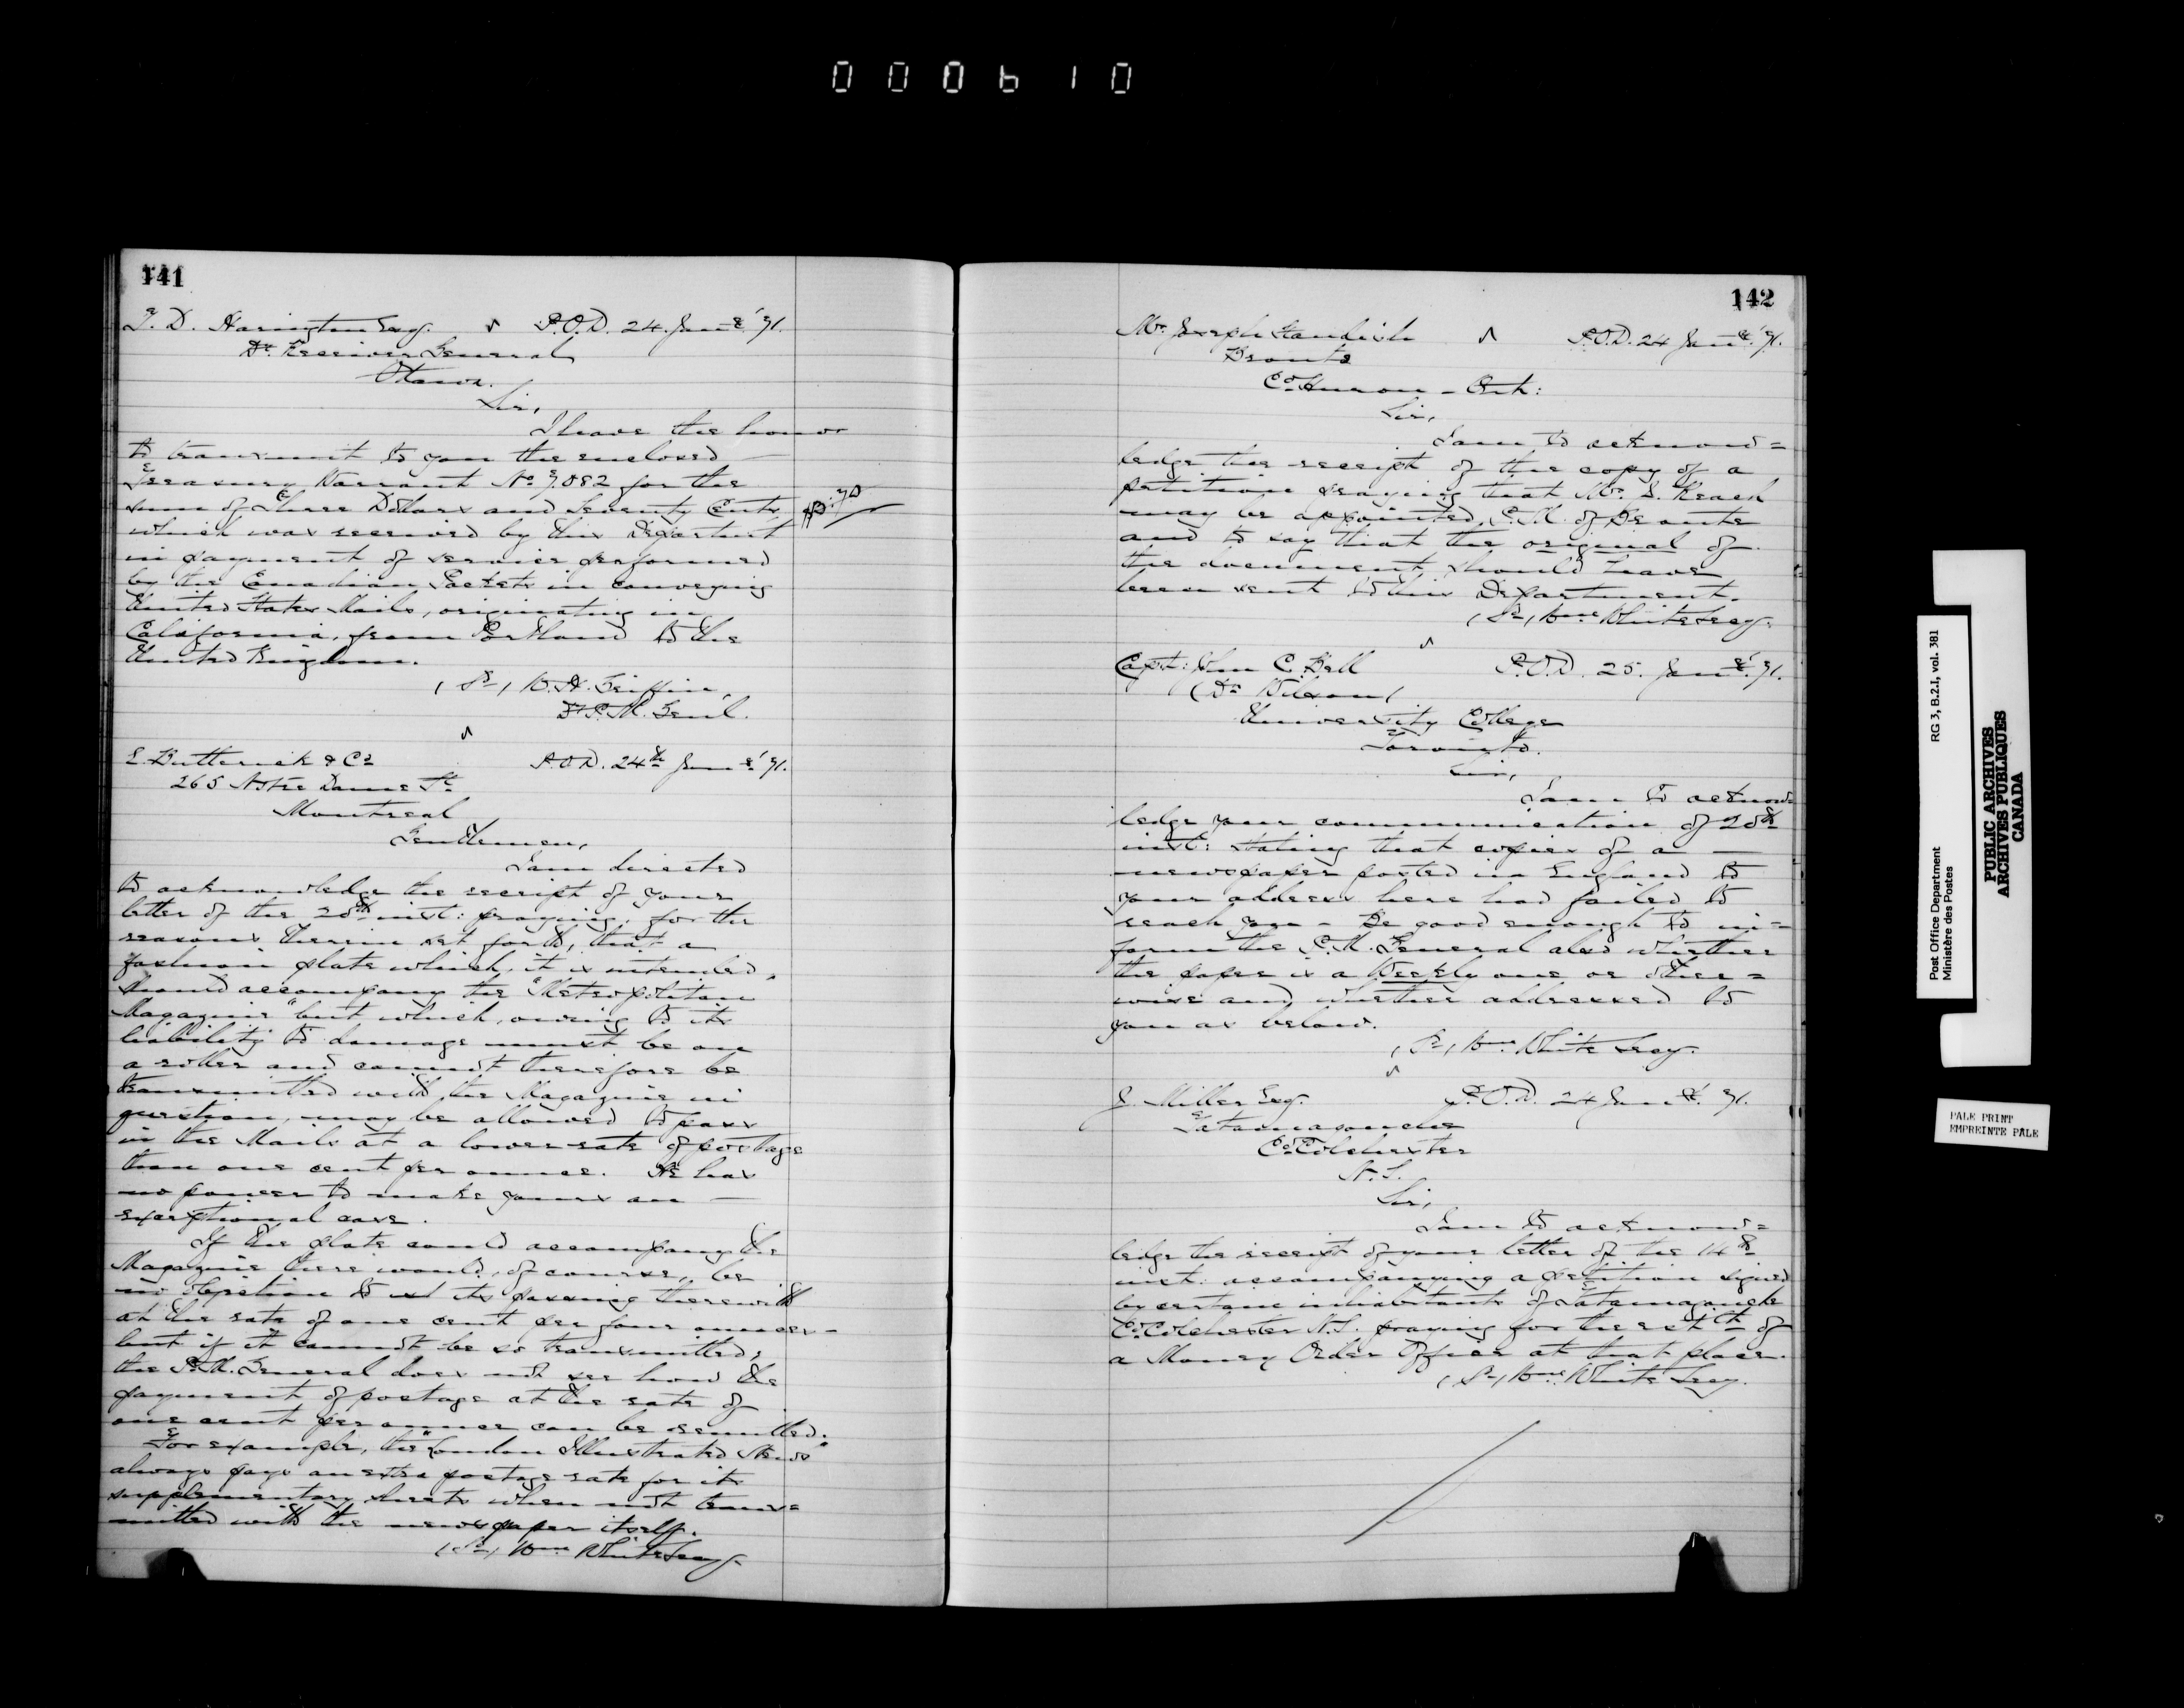 000610
141
T. D. Harington Esq. P.O.D. 24. Jany '71.
Dy. Receiver General
Ottawa.
Sir,
I have the honor
to transmit to you the enclosed
Treasury Warrant No 7,082 for the
sum of Three Dollars and Seventy Cents
which was received by this Department
in payment of service performed
by the Canadian Packets in conveying
United States Mails, originating in
California, from Portland to the
United Kingdom.
(Sd) W. H. Griffin,
D.P.M. Genl.
E. Butterick & Co P.O.D. 24th Jany '71.
265 Notre Dame St
Montreal
Gentlemen,
I am directed
to acknowledge the receipt of your
letter of the 20th inst: praying, for the
reasons therein set forth, that a
fashion plate which, it is intended,
should accompany the "Metropolitan
Magazine" but which, owing to its
liability to damage must be on
a roller and cannot therefore be
transmitted with the Magazine in
question, may be allowed to pass
in the Mails at a lower rate of postage
than one cent per ounce. He has
no power to make yours an
exceptional case.
If the plate could accompany the
Magazine there would, of course, be
no objection to its passing therewith
at the rate of one cent per four ounces -
but if it cannot be so transmitted,
the P.M. General does not see how the
payment of postage at the rate of
one cent per ounce can be remitted.
For example, the "London Illustrated News"
always pays an extra postage rate for its
supplementary sheets when not trans=
mitted with the newspaper itself.
(Sd) Wm White Secy.
142
Mr. Joseph Standish P.O.D. 24 Jany '71.
Bronte
Co Huron - Ont:
Sir,
I am to acknow=
ledge the receipt of the copy of a
petition praying that Mr. S. Keach
may be appointed P.M. of Bronte
and to say that the original of
the document should have
been sent to this Department.
(Sd) Wm White Secy.
Capt: John C. Ball P.O.D. 25. Jany '71.
(Dr Wilson)
University College
Toronto.
Sir,
I am to acknow=
ledge your communication of 20th
inst: stating that copies of a
newspaper posted in England to
your address here had failed to
reach you - Be good enough to in=
form the P.M. General also whether
the paper is a Weekly one or other=
wise and whether addressed to
you as below.
(Sd) Wm White Secy.
J. Miller Esq. P.O.D. 24 Jany '71.
Tatamagouche
Co Colchester
N.S.
Sir,
I am to acknow=
ledge the receipt of your letter of the 14th
inst: accompanying a petition signed
by certain inhabitants of Tatamagouche
Co Colchester N.S. praying for the estt of
a Money Order Office at that place.
(Sd) Wm White Secy.
Post Office Department RG 3, B.2.I, vol. 381
Ministère des Postes
PUBLIC ARCHIVES
ARCHIVES PUBLIQUES
CANADA
PALE PRINT
EMPREINTE PALE